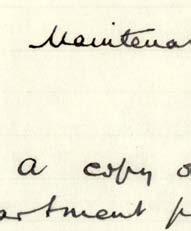 Maintena
a copy o
artment p